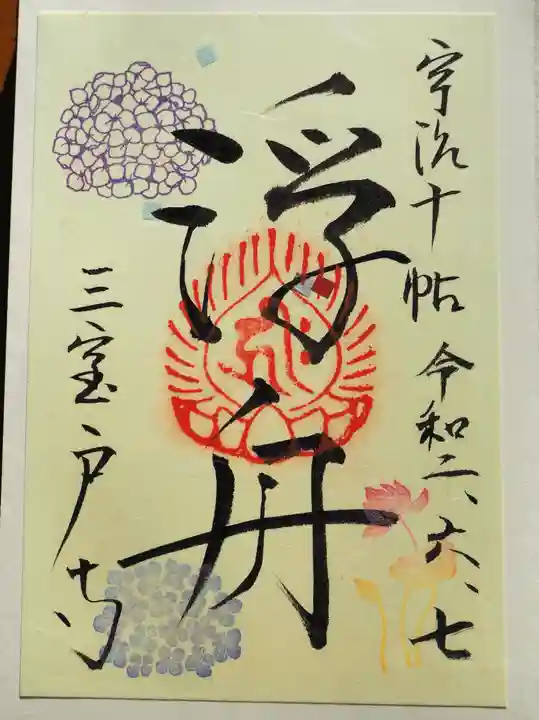 宇治十帖 令和二、六、七
浮舟
三室戸寺